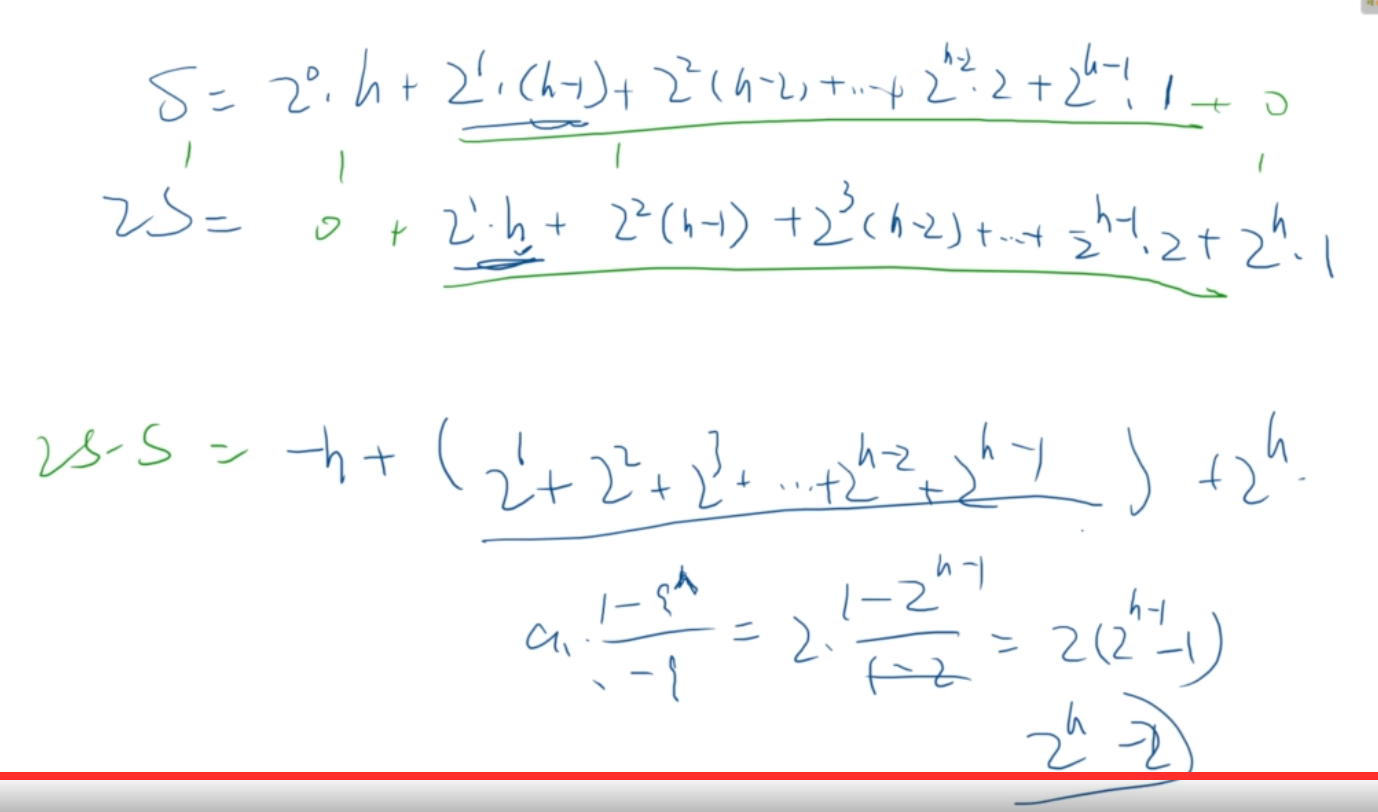 S = 2⁰·h + 2¹·(h-1) + 2²(h-2) + ... + 2ʰ⁻²·2 + 2ʰ⁻¹·1 + 0
2S = 0 + 2¹·h + 2²(h-1) + 2³(h-2) + ... + 2ʰ⁻¹·2 + 2ʰ·1
2S-S = -h + (2¹ + 2² + 2³ + ... + 2ʰ⁻² + 2ʰ⁻¹) + 2ʰ.
= 2·(1-2ʰ⁻¹)/(1-2) = 2(2ʰ⁻¹-1)
2ʰ -2